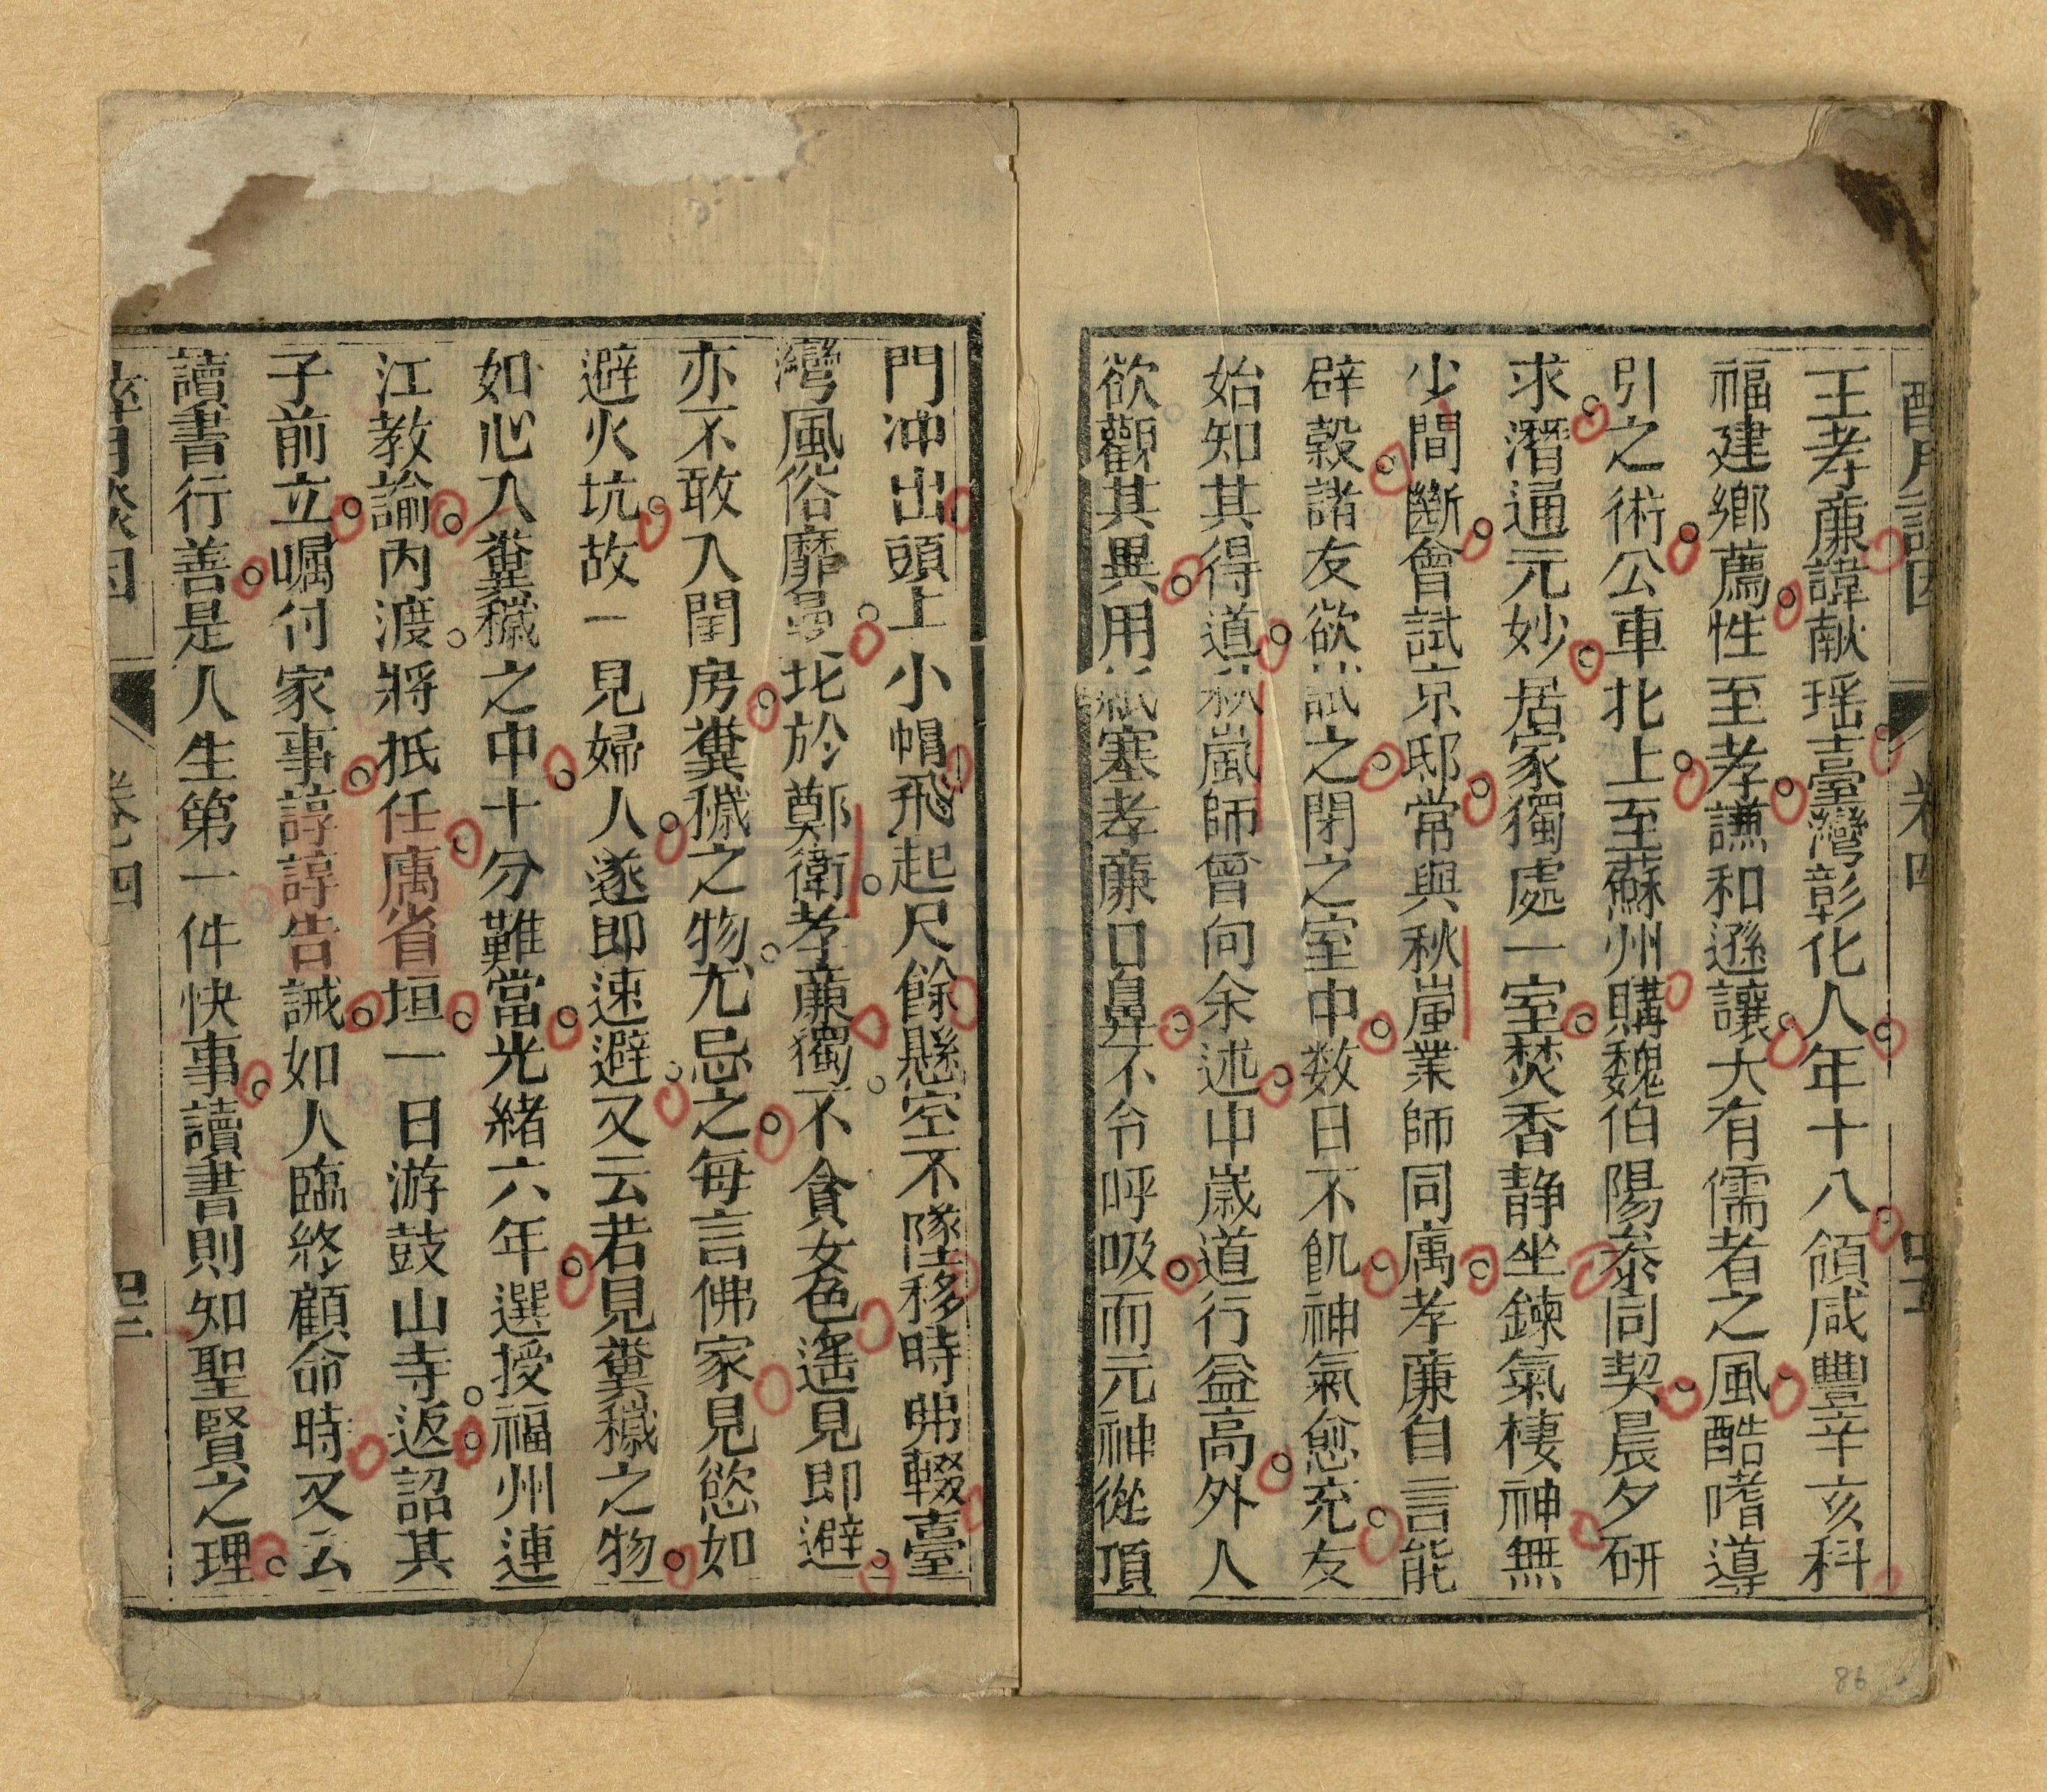 王孝廉諱献瑶臺灣彰化人年十八領咸豐辛亥科
福建鄉薦性至孝謙和遜讓大有儒者之風酷嗜導
引之術公車北上至蘇州購魏伯陽叅同契晨夕研
求潛通元妙居家獨處一室焚香静坐鍊氣棲神無
少間斷會試京邸常與秋嵐業師同寓孝廉自言能
辟穀諸友欲試之閉之室中数日不飢神氣愈充友
始知其得道秋嵐師曾向余述中歲道行益高外人
欲觀其異用紙塞孝廉口鼻不令呼吸而元神從頂
門冲出頭上小帽飛起尺餘懸空不墜移時弗輟臺
灣風俗靡曼比於鄭衛孝廉獨不貪女色遙見即避
亦不敢入閨房糞穢之物尤忌之每言佛家見慾如
避火坑故一見婦人遂即速避又云若見糞穢之物
如心入糞穢之中十分難當光緒六年選授福州連
江教諭內渡將抵任寓省垣一日游鼓山寺返詔其
子前立嘱付家事諄諄告誡如人臨終顧命時又云
讀書行善是人生第一件快事讀書則知聖賢之理
卷四